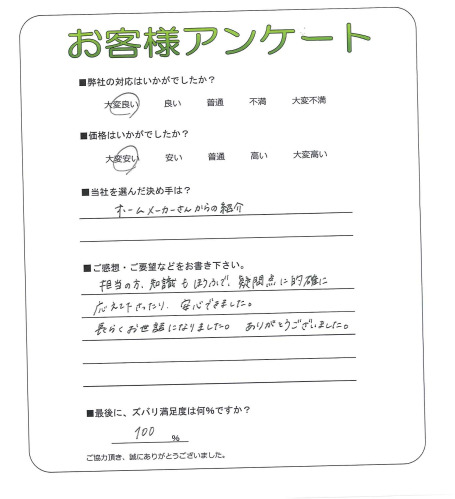 お客様アンケート
■弊社の対応はいかがでしたか？
大変良い 良い 普通 不満 大変不満
■価格はいかがでしたか？
大変安い 安い 普通 高い 大変高い
■当社を選んだ決め手は？
ホームメーカーさんからの紹介
■ご感想・ご要望などをお書き下さい。
担当の方、知識もほうふで、疑問点に的確に
応えて下さったり、安心できました。
長らくお世話になりました。 ありがとうございました。
■最後に、ズバリ満足度は何％ですか？
100 ％
ご協力頂き、誠にありがとうございました。